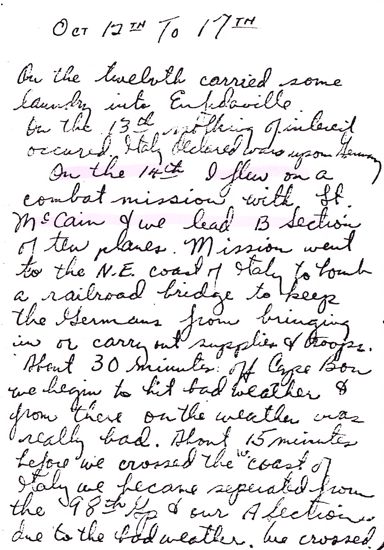 Oct 12TH To 17TH
On the twelvth carried some
laundry into Enfidaville.
On the 13th nothing of interest
occured. Italy declared war upon Germany
On the 14th I flew on a
combat mission with Lt.
McCain & we lead B Section
of ten planes. Mission went
to the N.E. coast of Italy to bomb
a railroad bridge to keep
the Germans from bringing
in or carry out supplies & troops.
About 30 minutes off Cape Bon
we begin to hit bad weather &
from there on the weather was
really bad. About 15 minutes
before we crossed the "coast of
Italy we became seperated from
the 98th Gp & our A Section
due to the bad weather. We crossed